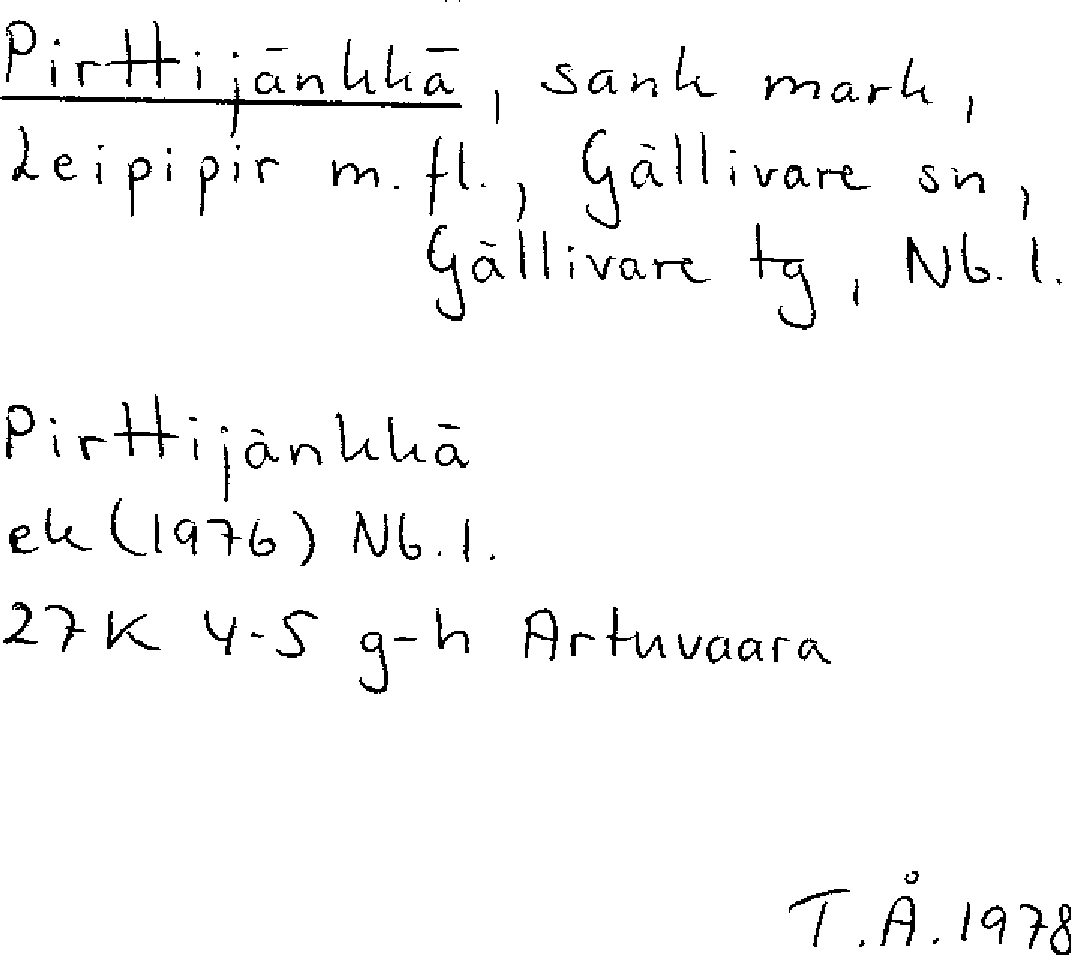 Pirttijänkkä, sank mark,
Leipipir m. fl., Gällivare sn,
Gällivare tg, Nb. l.
Pirttijänkkä
ek (1976) Nb. l.
27K 4-5 g-h Artuvaara
T.Å. 1978